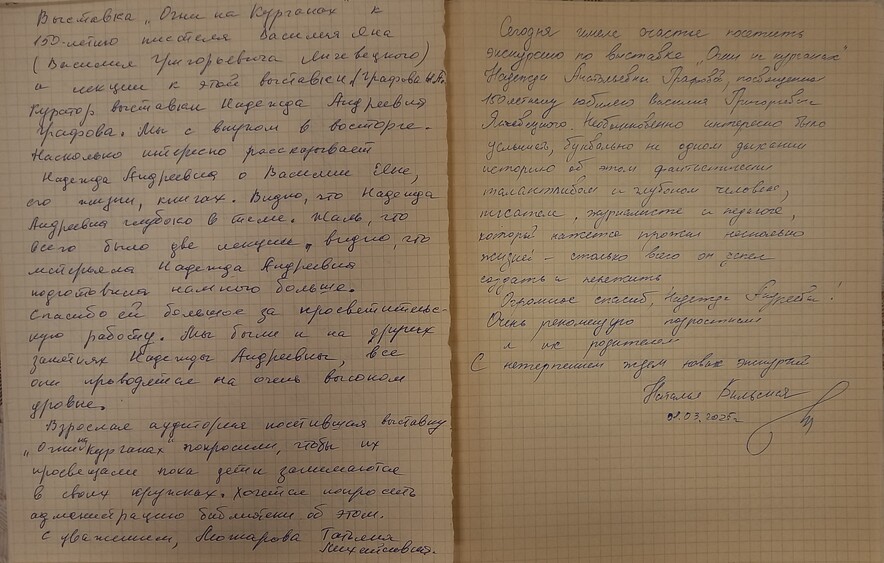 Выставка „Огни на Курганах" к
150-летию писателя Василия Яна
(Василия Григорьевича Янчевецкого)
и лекции к этой выставки (Графова Н.А.
Куратор выставки Надежда Андреевна
Графова. Мы с внуком в восторге.
Насколько интересно рассказывает
Надежда Андреевна о Василии Яне,
его жизни, книгах. Видно, что Надежда
Андреевна глубоко в теме. Жаль, что
всего было две лекции, видно, что
материала Надежда Андреевна
подготовила намного больше.
Спасибо ей большое за просветительс-
кую работу. Мы были и на других
занятиях Надежды Андреевны, все
они проводятся на очень высоком
уровне.
Взрослая аудитория посетившая выставку
„Огни на Курганах" попросили, чтобы их
просвещали пока дети занимаются
в своих кружках. Хочется попросить
администрацию библиотеки об этом.
С уважением, Татьяна
Михайловна.
Сегодня имела счастье посетить
экскурсию по выставке „Огни на курганах"
Надежды Графовой, посвящённой
150летнему юбилею Василия Григорьевича
Янчевецкого. Необыкновенно интересно было
услышать, буквально на одном дыхании
историю об этом фантастически
талантливом и глубоком человеке,
писателе, журналисте и педагоге,
который кажется прожил несколько
жизней – столько всего он успел
создать и пережить
Огромное спасибо, Надежда Андреевна!
Очень рекомендую подросткам
и их родителям
С нетерпением ждем новых экскурсий
Наталья
03.2025г